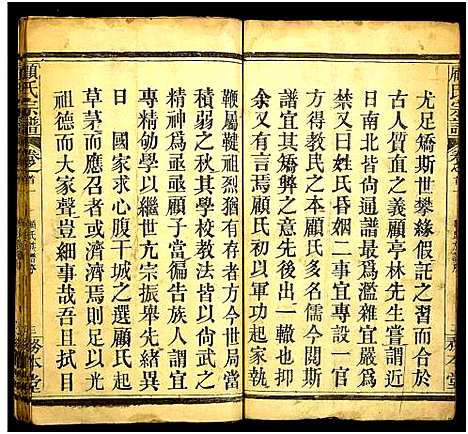 尤足矯斯世攀緣假託之習而合於
古人質直之義顧亭林先生嘗言今
日南北皆尚通譜最爲濫雜宜嚴爲
禁又曰姓氏昏姻二事宜專設一官
方得教民之本顧氏多儒今開斯
譜宜其矯弊之意先後出一轍也抑
余又有進焉顧氏之先起家掛
鞭屬鞬祖烈猶有存者方今世局當
積弱之秋其學校教法皆以尚武
精神爲亟亟顧子當徧告族人宜
專精劬學以繼世亢宗振舉先緒異
日國家求心腹干城之選顧氏起
草茅而應召者濟濟焉則足以光
祖德而大家聲豈細事哉吾且拭目
顧氏宗譜
卷之首
務本堂